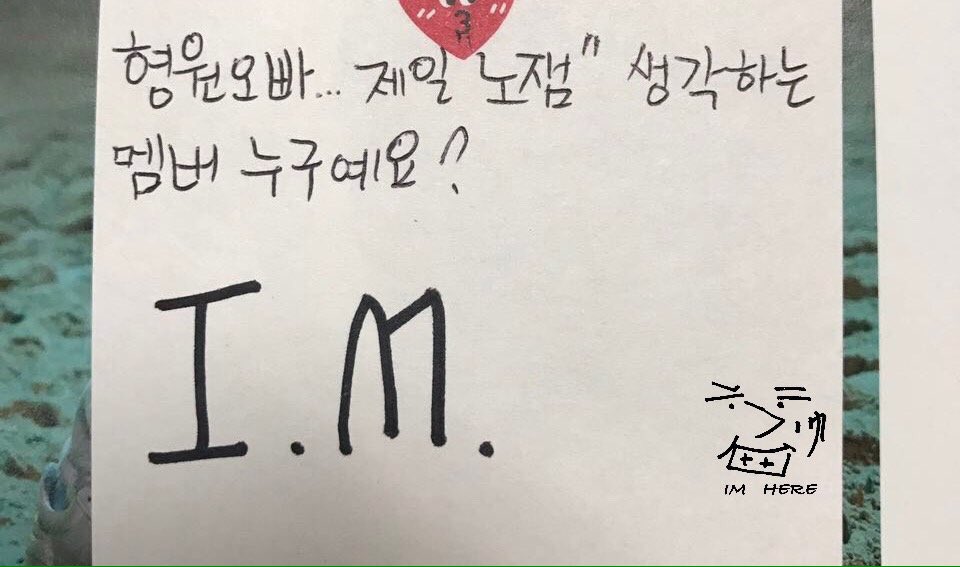 형원오빠... 제일 노잼" 생각하는
멤버 누구예요?
I.M.
IM HERE